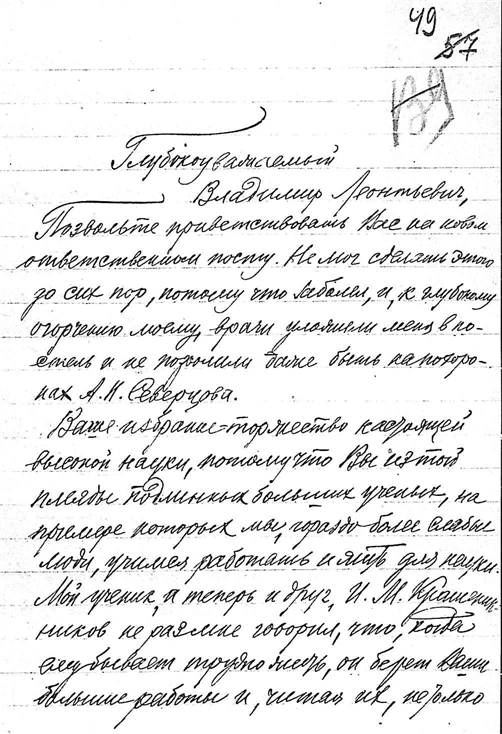 49
57
Глубокоуважаемый
Владимир Леонтьевич,
Позвольте приветствовать Вас на новом
ответственном посту. Не мог сделать этого
до сих пор, потому что заболел, и, к глубокому
огорчению моему, врачи уложили меня в по-
стель и не позволили даже быть на похоро-
нах А. Н. Северцова.
Ваше избрание – торжество настоящей
высокой науки, потому что Вы из той
плеяды подлинных больших ученых, на
примере которых мы, гораздо более слабые
люди, учимся работать и жить для науки.
Мой ученик, а теперь и друг, И. М. Крашенин-
ников не раз мне говорил, что, когда
ему бывает трудно жить, он берет Ваши
большие работы и, читая их, не только